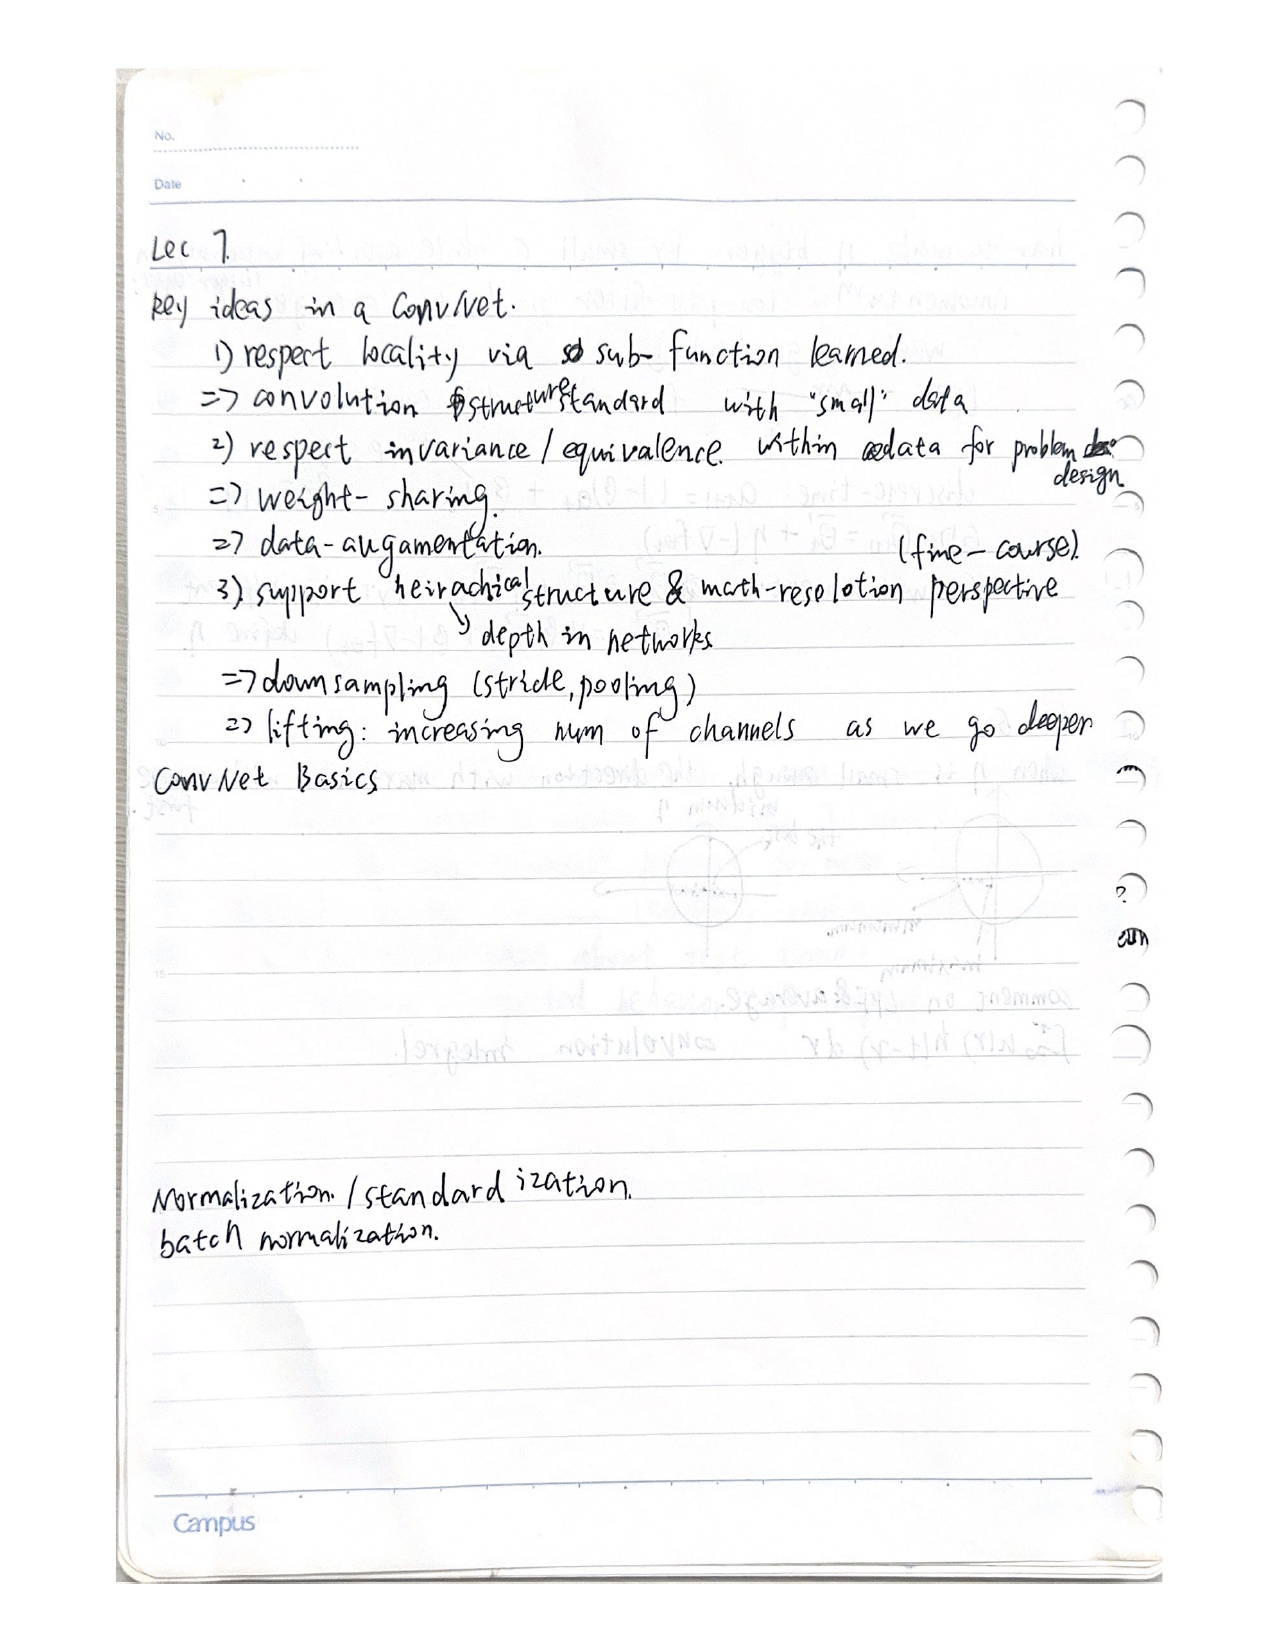 No.
Date
Lec 7.
key ideas in a ConvNet.
1) respect locality via sub-function learned.
=> convolution structure standard with "small" data
2) respect invariance / equivalence. within data for problem
design
=> weight-sharing.
=> data-augamentation.
(fine-course).
3) support heirachical structure & math-resolotion perspective
depth in networks.
=> downsampling (stride, pooling)
=> lifting: increasing num of channels as we go deeper
ConvNet Basics
Normalization. / standardization.
batch normalization.
Campus